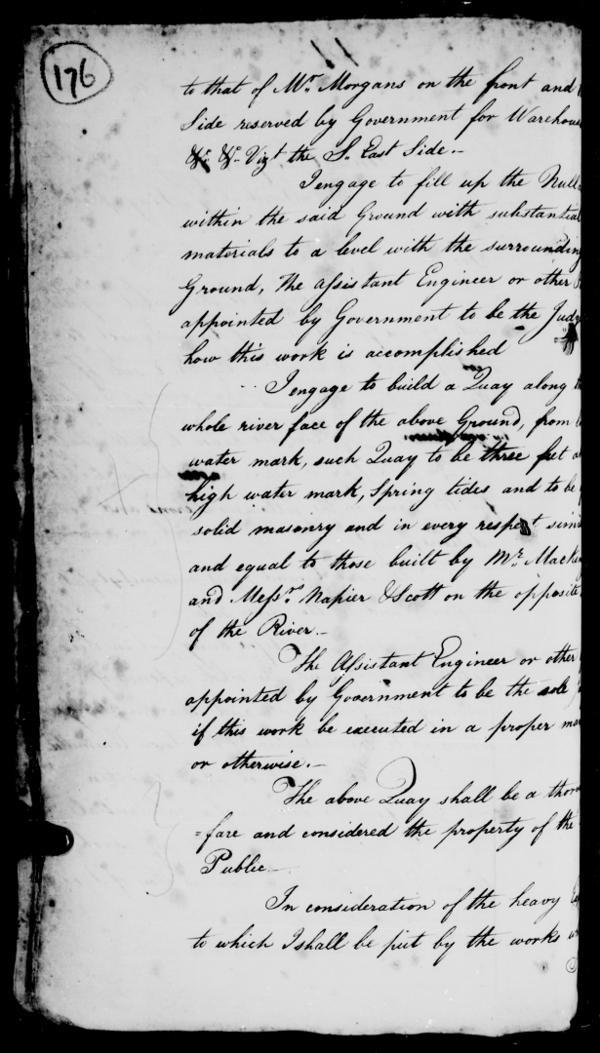 176
to that of Mr. Morgans on the front and
Side reserved by Government for Warehous
&c. &c. Vizt the So. East Side.-
I engage to fill up the Null
within the said Ground with substantial
materials to a level with the surrounding
Ground, The Assistant Engineer or other
appointed by Government to be the Judg
how this work is accomplished
I engage to build a Quay along
whole river face of the above Ground, from
water mark, such Quay to be three feet
high water mark, Spring tides and to be
solid masonry and in every respect simi
and equal to those built by Mr. Macken
and Messrs. Napier & Scott on the opposite
of the River.-
The Assistant Engineer or other
appointed by Government to be the sole
if this work be executed in a proper ma
or otherwise.-
The above Quay shall be a thoro
=fare and considered the property of the
Public.-
In consideration of the heavy
to which I shall be put by the works